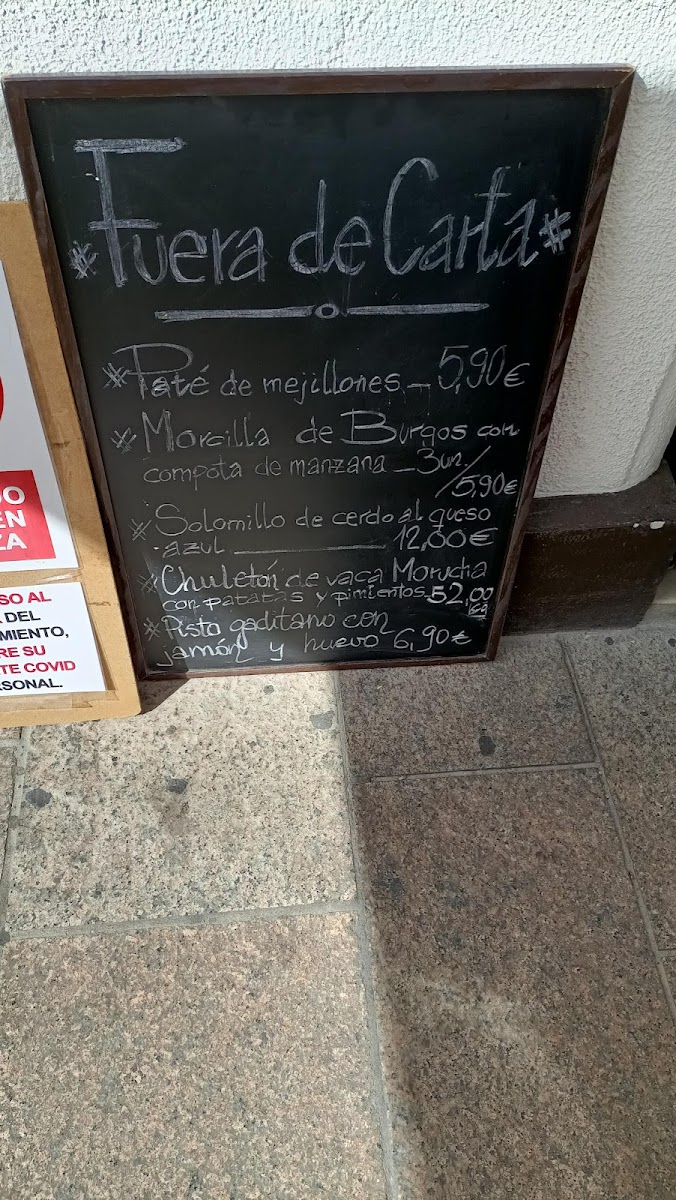 * Fuera de Carta *
* Paté de mejillones _ 5,90€
* Morcilla de Burgos con
compota de manzana _ 3un/
5,90€
* Solomillo de cerdo al queso
azul ________ 12,00€
* Chuletón de vaca Morucha
con patatas y pimientos 52,00
kg
* Pisto gaditano con
jamón y huevo 6,90€
DO
EN
ZA
SO AL
DEL
MIENTO,
RE SU
TE COVID
RSONAL.